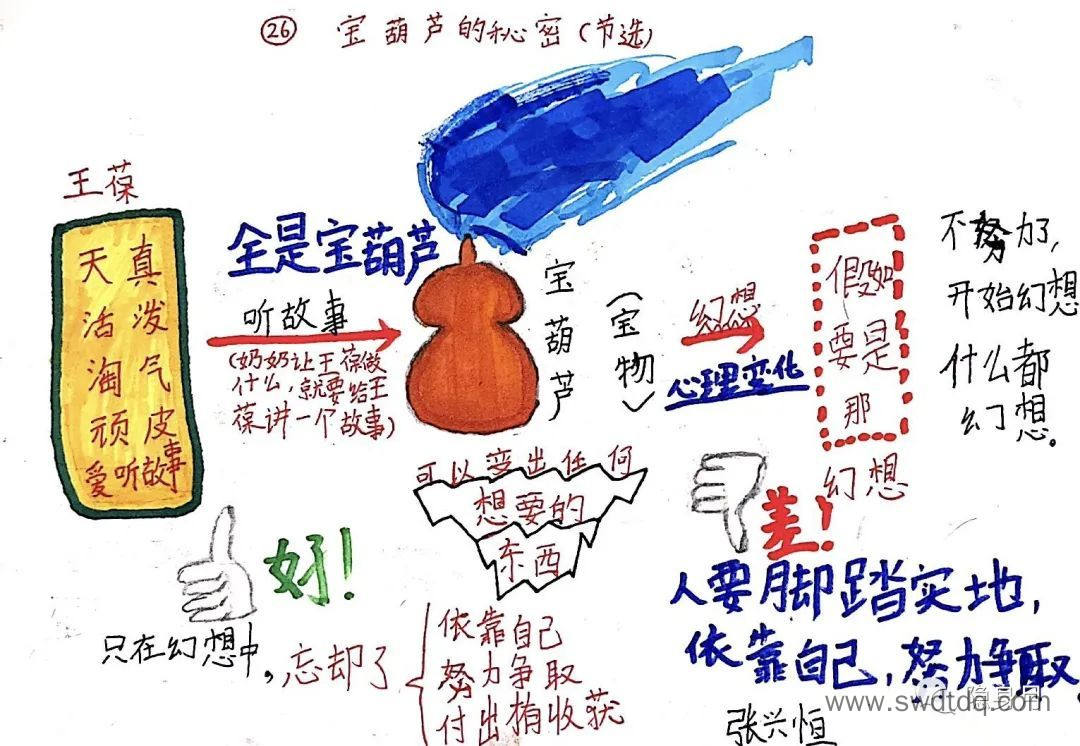 26 宝葫芦的秘密(节选)
王葆
天真
活泼
淘气
顽皮
爱听故事
全是宝葫芦
听故事
(奶奶让王葆做
什么,就要给王
葆讲一个故事)
宝葫芦
(宝物)
幻想
心理变化
假如
要是
那
幻想
不努力了,
开始幻想
什么都
幻想。
可以变出任何
想要的
东西
好!
差!
只在幻想中,忘却了
依靠自己
努力争取
付出有收获
人要脚踏实地,
依靠自己,努力争取.
张兴恒
www.swdtdq.com